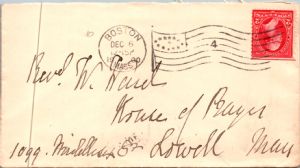 BOSTON
DEC 6
MASS.
4
Revd. W. Ward
House of Prayer
Lowell Mass
1099. Middlesex St.